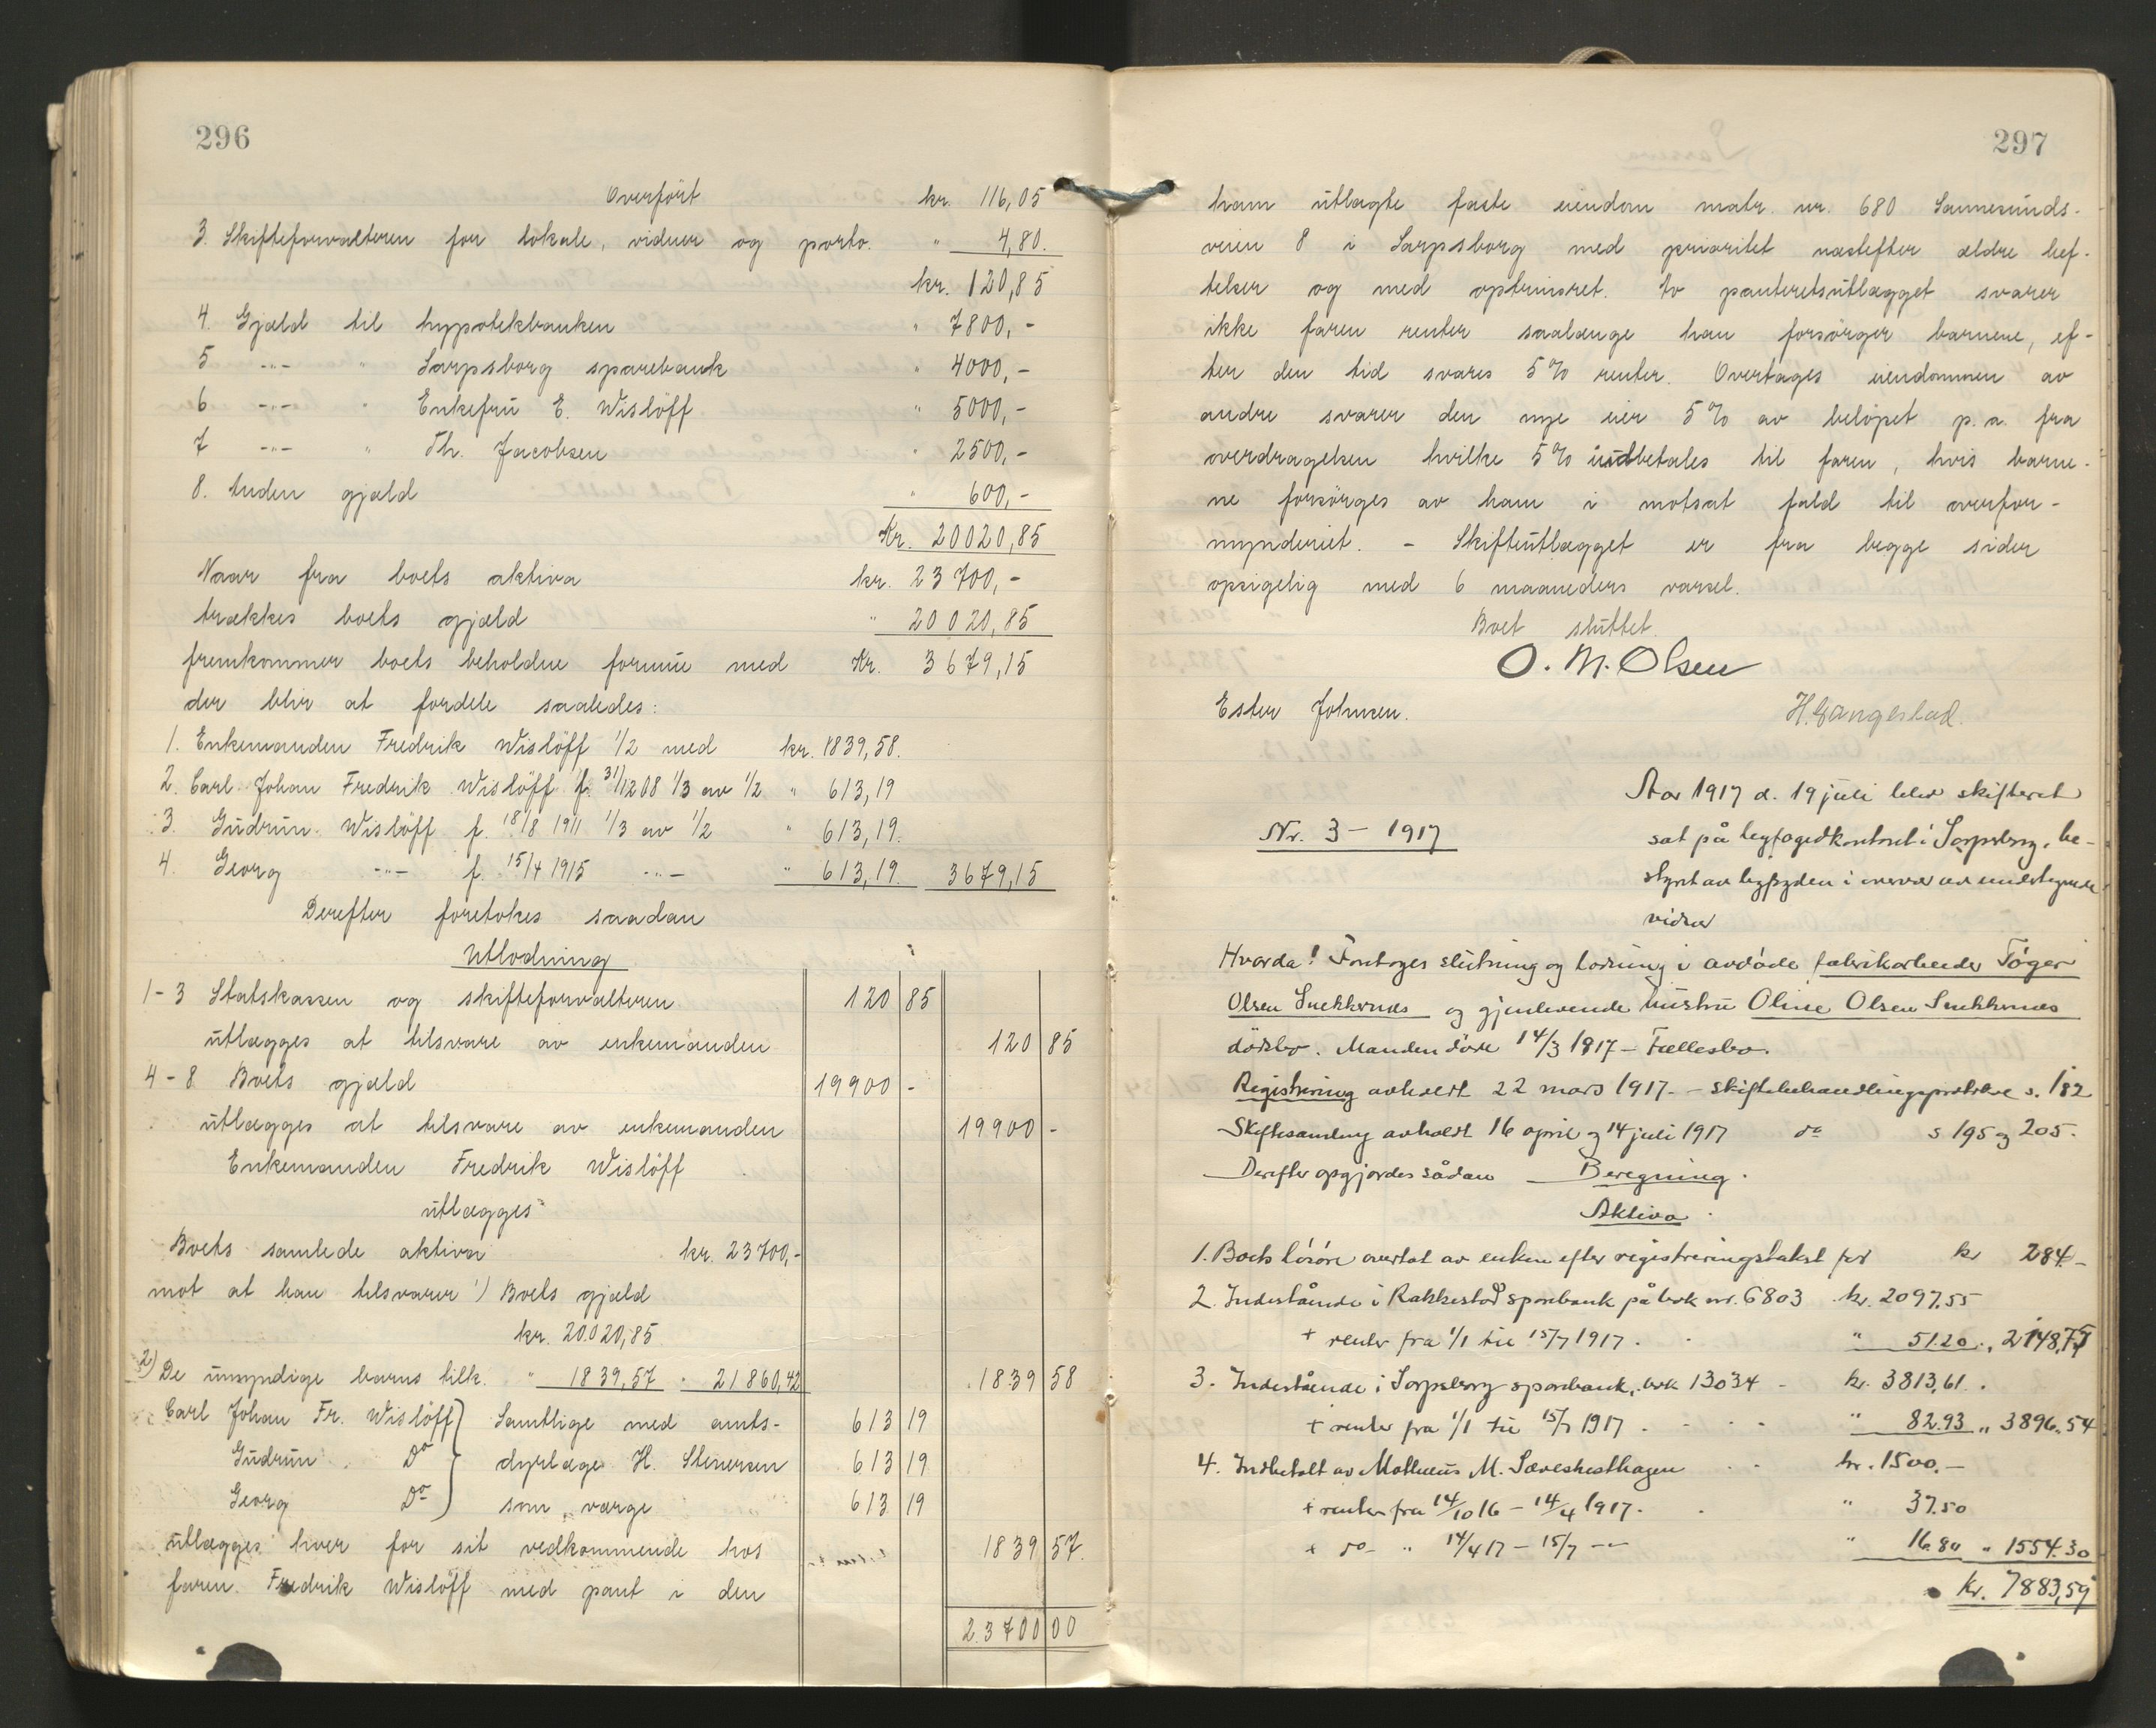 296
Overført kr. 116,05
3. Skifteforvalteren for lokale, vidner og porto. " 4,80.
kr. 120,85
4. Gjæld til hypotekbanken " 7800,-
5 -"- " Sarpsborg sparebank " 4000,-
6 -"- " Enkefru E. Wisløff " 5000,-
7 -"- " Th. Jacobsen " 2500,-
8. Anden gjæld " 600,-
Kr. 20020,85
Naar fra boets aktiva kr. 23700,-
trækkes boets gjæld " 20020,85
fremkommer boets beholdne formue med Kr. 3679,15
der blir at fordele saaledes:
1. Enkemanden Fredrik Wisløff 1/2 med kr. 1839,58.
2. Carl Johan Fredrik Wisløff f. 31/12 08 1/3 av 1/2 " 613,19
3. Gudrun Wisløff f. 18/8 1911 1/3 av 1/2 " 613,19.
4. Georg -"- f. 15/4 1915 -"- " 613,19. 3679,15
Derefter foretokes saadan
Utlodning
1-3 Statskassen og skifteforvalteren 120 85
utlægges at tilsvare av enkemanden 120 85
4-8 Boets gjæld 19900 -
utlægges at tilsvare av enkemanden 19900 -
Enkemanden Fredrik Wisløff
utlægges
Boets samlede aktiva kr. 23700,-
mot at han tilsvarer 1) Boets gjæld
kr. 20.020,85
2) De umyndige barns tilk. " 1839,57 " 21860,42 1839 58
Carl Johan Fr. Wisløff } Samtlige med amts- 613 19
Gudrun Do } dyrlæge H. Stenersen 613 19
Georg Do } som værge 613 19
utlægges hver for sit vedkommende hos 1839 57.
faren Fredrik Wisløff med pant i den
23700 00
297
ham utlagte faste eiendom matr. nr. 680 Sannesunds-
veien 8 i Sarpsborg med prioritet næstefter ældre hef-
telser og med optrinsret. Av panteretsutlægget svarer
ikke faren renter saalænge han forsørger barnene, ef-
ter den tid svares 5% renter. Overtages eiendommen av
andre svarer den nye eier 5% av beløpet p.a. fra
overdragelsen hvilke 5% indbetales til faren, hvis barne-
ne forsørges av ham i motsat fald til overfor-
mynderiet. - Skifteutlægget er fra begge sider
opsigelig med 6 maaneders varsel.
Boet sluttet.
O. M. Olsen
Ester Johnsen. H. Gangestad.
Nr. 3 - 1917
Aar 1917 d. 19 juli blev skifteret
sat på byfogedkontoret i Sarpsborg, be-
styret av byfogden i overvær av undertegnede
vidner
Hvorda! Foretoges slutning og lodning i avdøde fabrikarbeider Tøger
Olsen Snekkernes og gjenlevende hustru Oline Olsen Snekkernes
dødsbo. Manden døde 14/3 1917 - Fællesbo.
Registrering avholdt 22 mars 1917 - skiftebehandlingsprotokol s. 182
Skiftesamling avholdt 16 april og 14 juli 1917 do s 195 og 205.
Derefter opgjordes sådan Beregning.
Aktiva.
1. Boets løsøre overtat av enken efter registreringstakst for kr 284.-
2. Indestående i Rakkestad sparebank på bok nr. 6803 kr. 2097.55
+ renter fra 1/1 til 15/7 1917. " 51.20 " 2148,75
3. Indestående i Sarpsborg sparebank, bok 13034 - kr. 3813,61.
+ renter fra 1/1 til 15/7 1917. " 82.93 " 3896.54
4. Indbetalt av Mathæus M. kr. 1500.-
+ renter fra 14/10 16 - 14/4 1917. " 37.50
+ do " 14/4 17 - 15/7 -"- " 16.80 " 1554.30
Kr. 7883,59